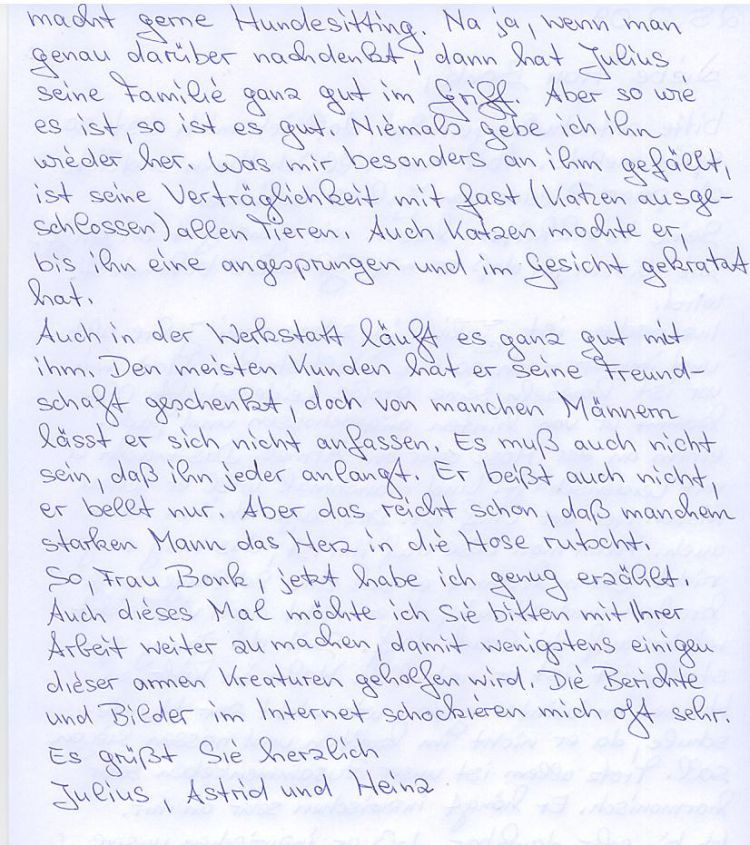 macht gerne Hundesitting. Na ja, wenn man
genau darüber nachdenkt, dann hat Julius
seine Familie ganz gut im Griff. Aber so wie
es ist so ist es gut. Niemals gebe ich ihn
wieder her. Was mir besonders an ihm gefällt,
ist seine Verträglichkeit mit fast (Katzen ausge-
schlossen) allen Tieren. Auch Katzen mochte er,
bis ihn eine angesprungen und im Gesicht gekratzt
hat.
Auch in der Werkstatt läuft es ganz gut mit
ihm. Den meisten Kunden hat er seine Freund-
schaft geschenkt, doch von manchen Männern
lässt er sich nicht anfassen. Es muß auch nicht
sein, daß ihn jeder anlangt. Er beißt auch nicht,
er bellt nur. Aber das reicht schon, daß manchem
starken Mann das Herz in die Hose rutscht.
So, Frau Bonk, jetzt habe ich genug erzählt.
Auch dieses Mal möchte ich Sie bitten mit Ihrer
Arbeit weiter zu machen, damit wenigstens einigen
dieser armen Kreaturen geholfen wird. Die Berichte
und Bilder im Internet schockieren mich oft sehr.
Es grüßt Sie herzlich
Julius, Astrid und Heinz